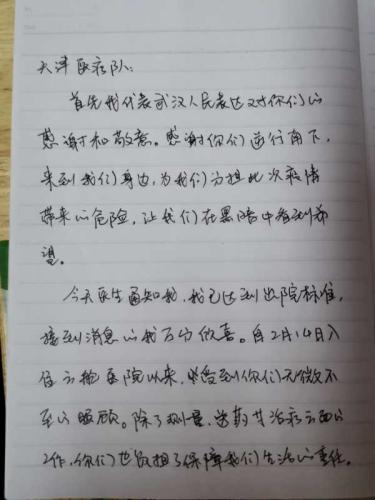 天津医疗队:
首先我代表武汉人民表达对你们的
感谢和敬意。感谢你们逆行南下,
来到我们身边,为我们分担此次疫情
带来的危险,让我们在黑暗中看到希
望。
今天医生通知我,我已达到出院标准,
接到消息的我万分欣喜。自2月14日入
住方舱医院以来,感受到你们无微不
至的照顾。除了测量,送药甘治疗方面的
工作,你们也负担了保障我们生活的责任。